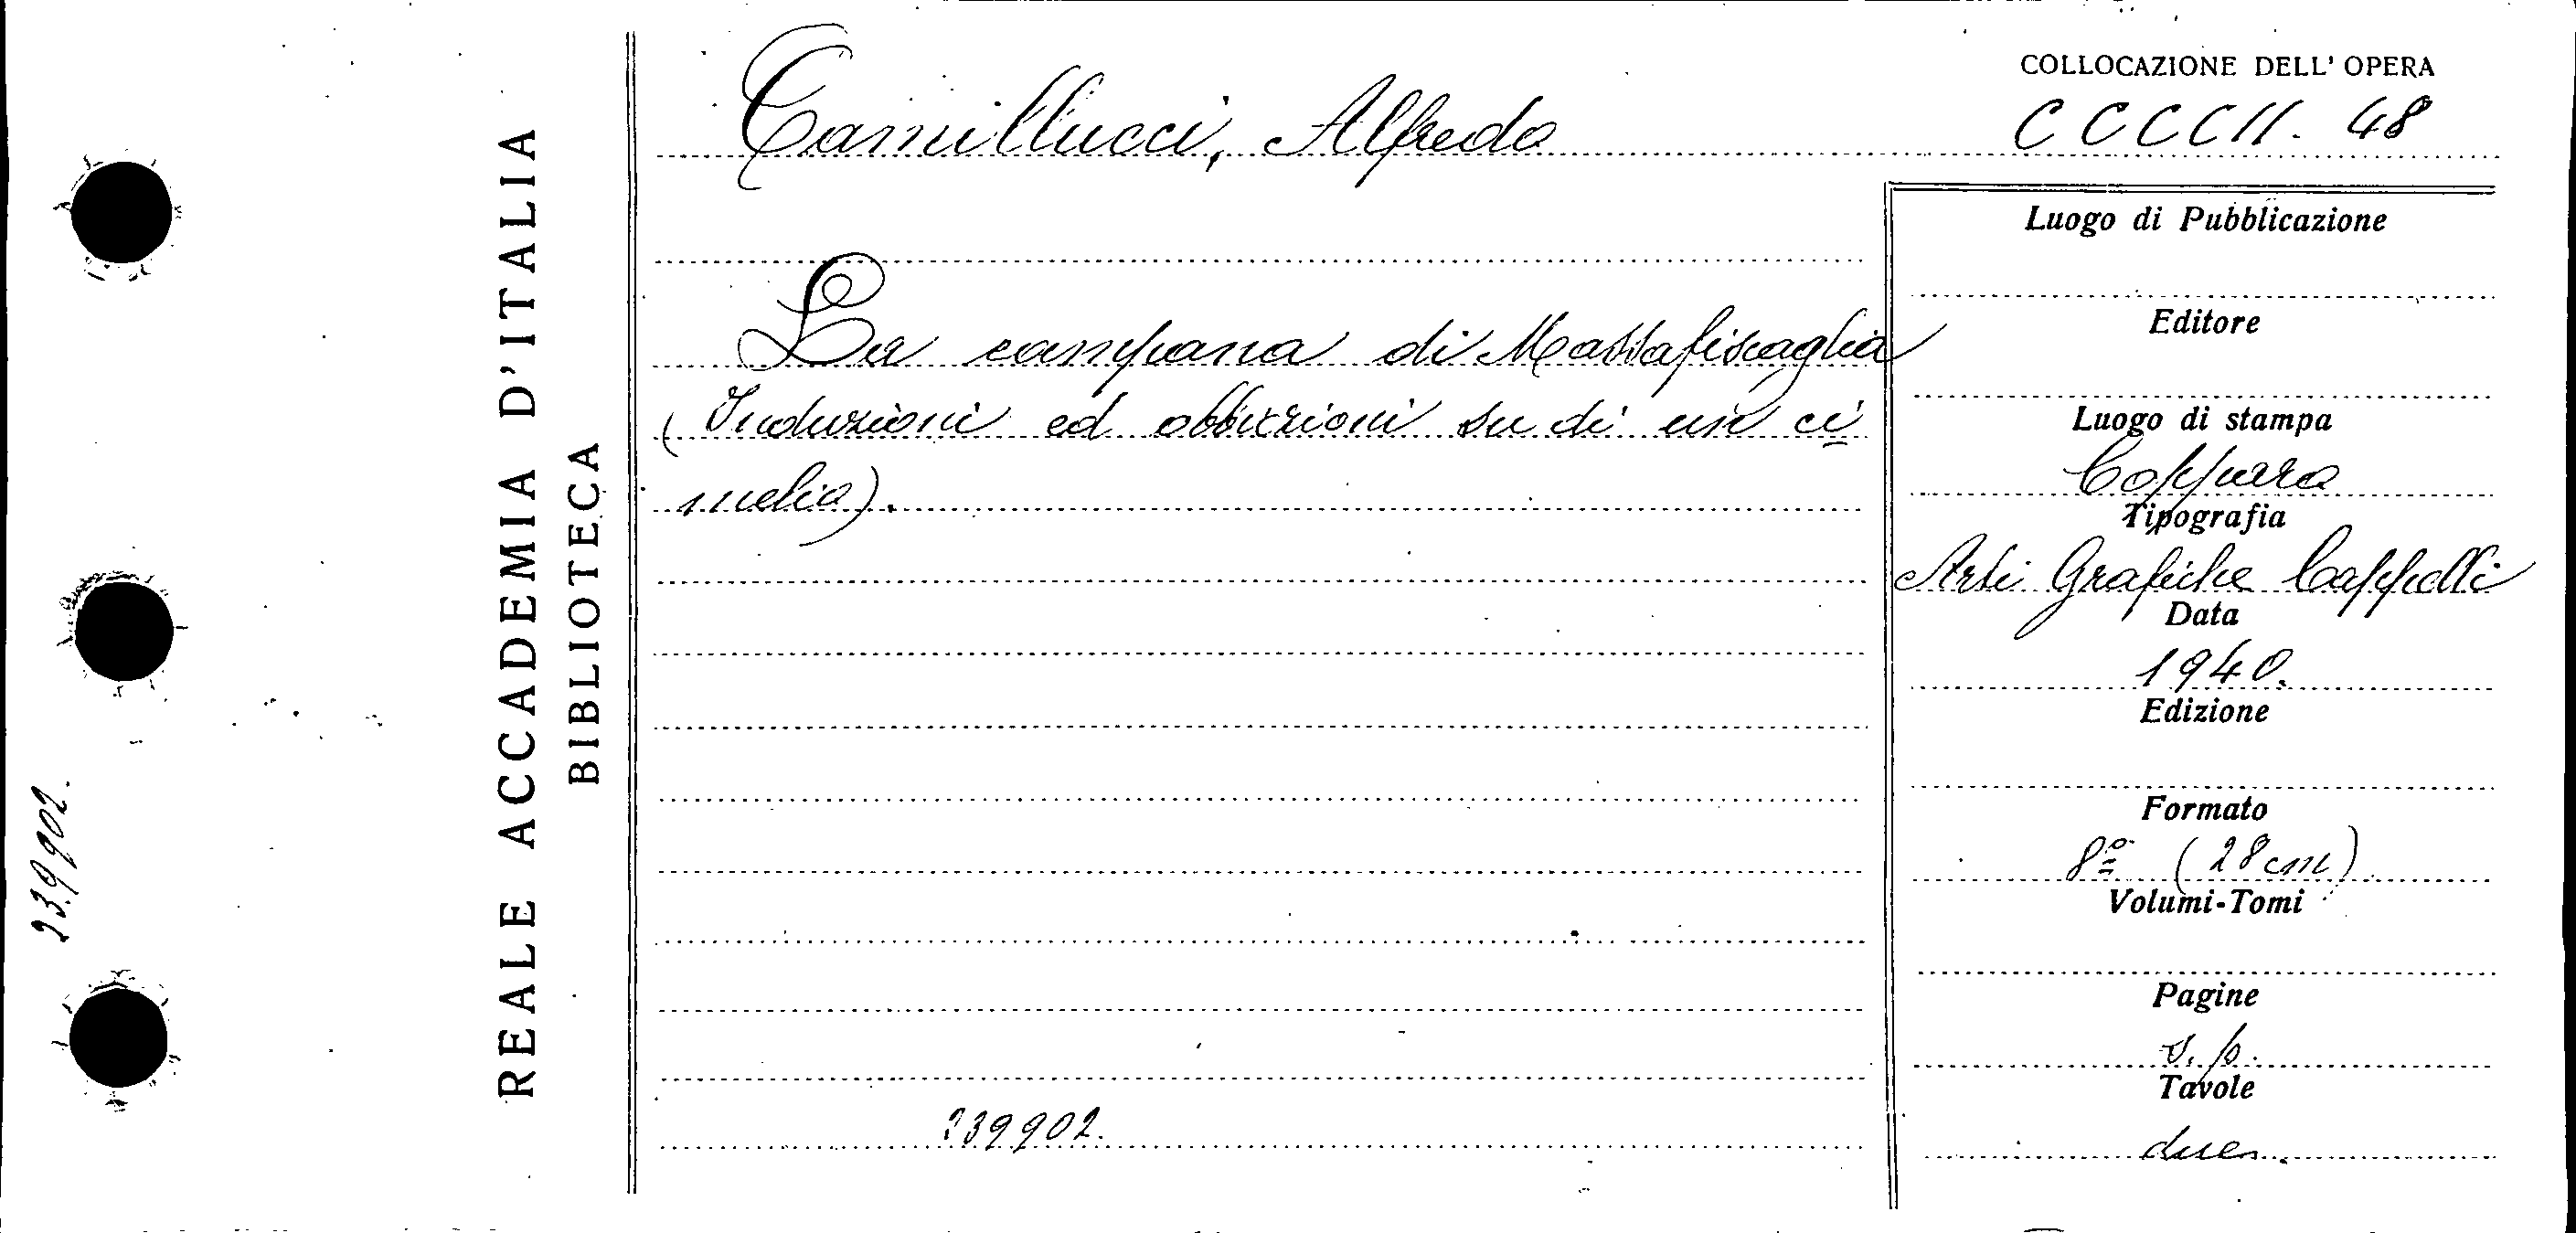 239902.
REALE ACCADEMIA D'ITALIA
BIBLIOTECA
Camillucci, Alfredo
La campana di Massafiscaglia
(Induzioni ed obbiezioni su di un ci
melio).
239902.
COLLOCAZIONE DELL' OPERA
CCCCII. 48
Luogo di Pubblicazione
Editore
Luogo di stampa
Copparo
Tipografia
Arti Grafiche Cappelli
Data
1940.
Edizione
Formato
8º (28cm)
Volumi-Tomi
Pagine
s. p.
Tavole
due.